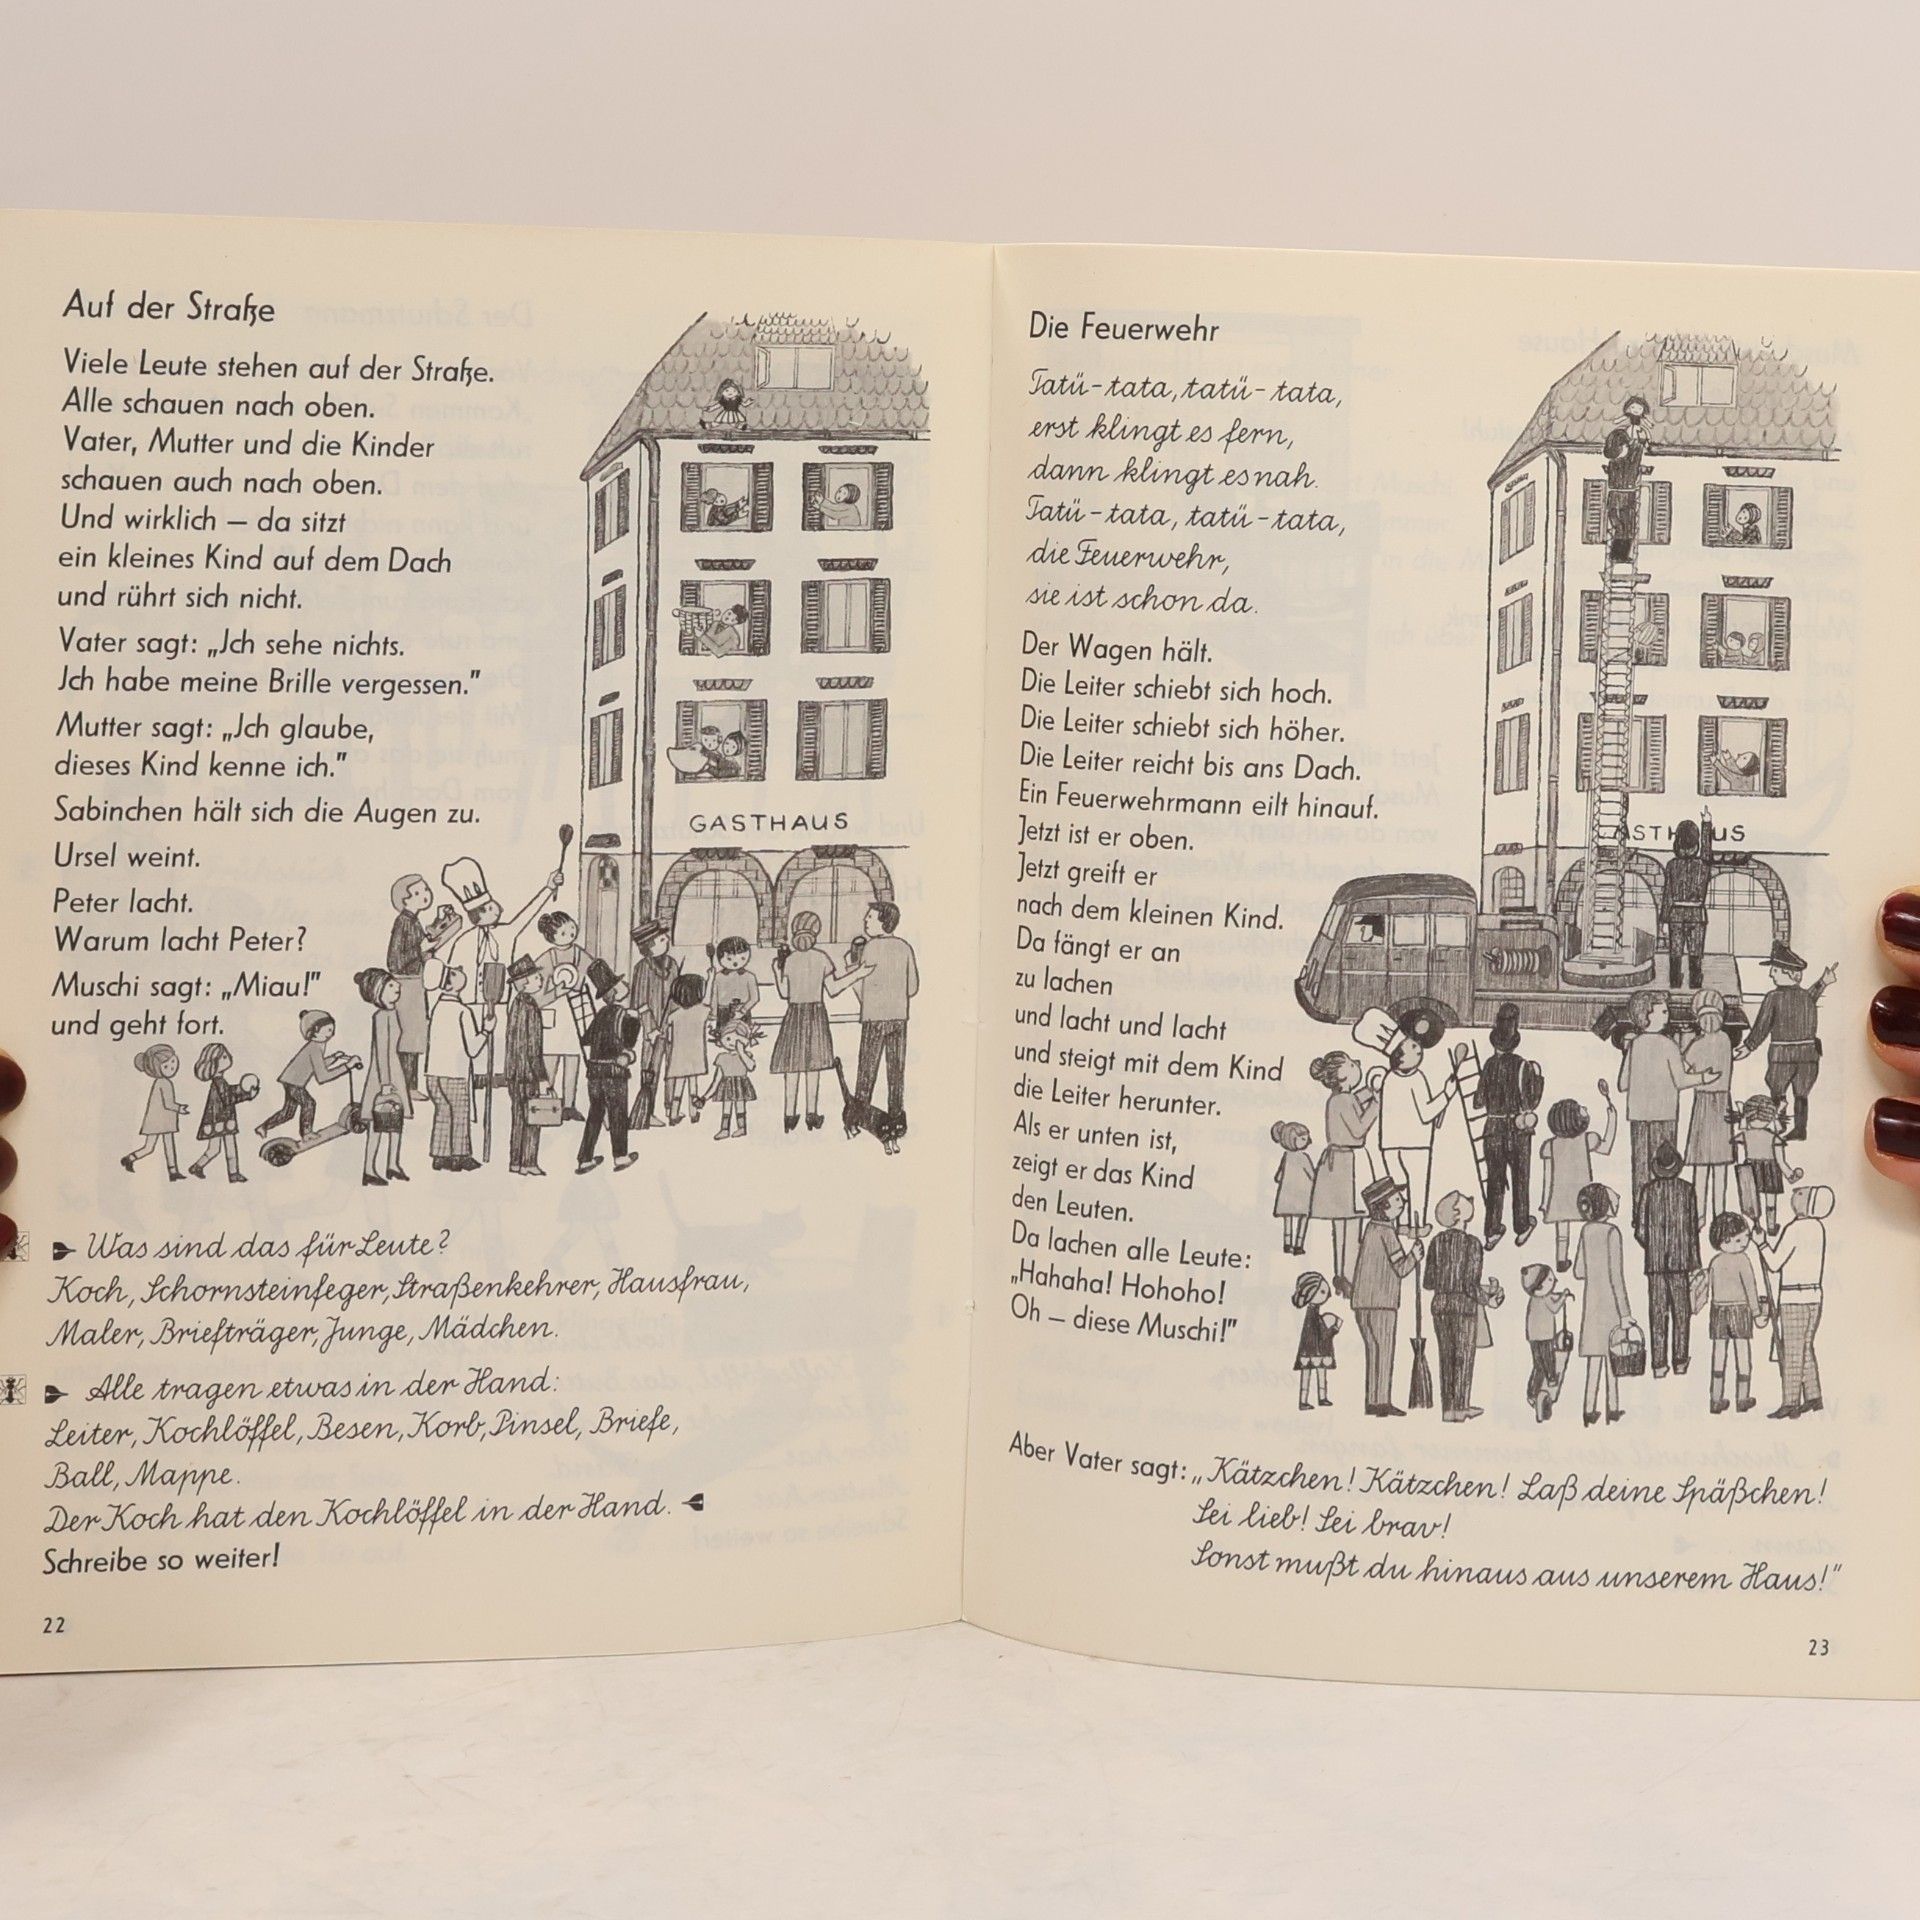 Auf der Straße
Viele Leute stehen auf der Straße.
Alle schauen nach oben.
Vater, Mutter und die Kinder
schauen auch nach oben.
Und wirklich – da sitzt
ein kleines Kind auf dem Dach
und rührt sich nicht.
Vater sagt: „Jch sehe nichts.
Jch habe meine Brille vergessen."
Mutter sagt: „Jch glaube,
dieses Kind kenne ich."
Sabinchen hält sich die Augen zu.
Ursel weint.
Peter lacht.
Warum lacht Peter?
Muschi sagt: „Miau!"
und geht fort.
GASTHAUS
Was sind das für Leute?
Koch, Schornsteinfeger, Straßenkehrer, Hausfrau,
Maler, Briefträger, Junge, Mädchen.
Alle tragen etwas in der Hand:
Leiter, Kochlöffel, Besen, Korb, Pinsel, Briefe,
Ball, Mappe.
Der Koch hat den Kochlöffel in der Hand.
Schreibe so weiter!
22
Die Feuerwehr
Tatü-tata, tatü-tata,
erst klingt es fern,
dann klingt es nah.
Tatü-tata, tatü-tata,
die Feuerwehr,
sie ist schon da.
Der Wagen hält.
Die Leiter schiebt sich hoch.
Die Leiter schiebt sich höher.
Die Leiter reicht bis ans Dach.
Ein Feuerwehrmann eilt hinauf.
Jetzt ist er oben.
Jetzt greift er
nach dem kleinen Kind.
Da fängt er an
zu lachen
und lacht und lacht
und steigt mit dem Kind
die Leiter herunter.
Als er unten ist,
zeigt er das Kind
den Leuten.
Da lachen alle Leute:
„Hahaha! Hohoho!
Oh – diese Muschi!"
Aber Vater sagt: „Kätzchen! Kätzchen! Laß deine Späßchen!
Sei lieb! Sei brav!
Sonst mußt du hinaus aus unserem Haus!"
23